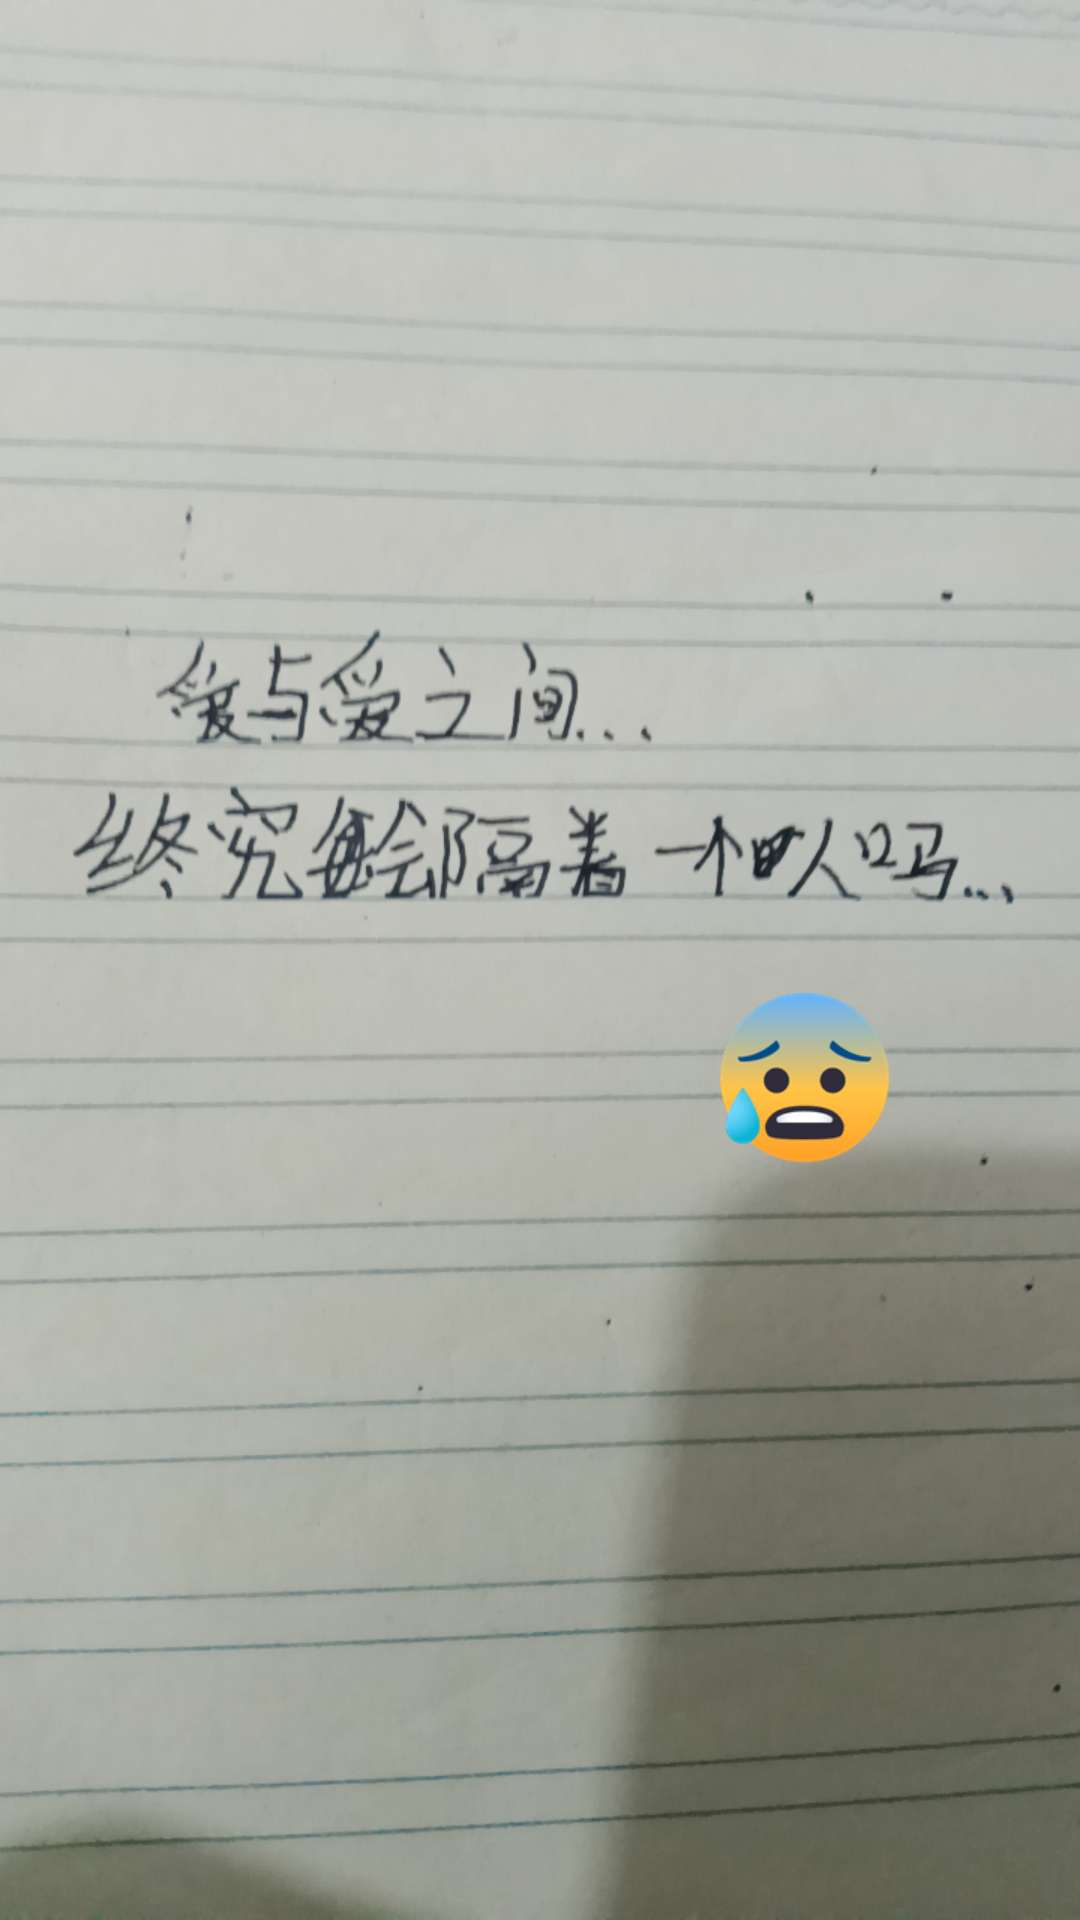 爱与爱之间...
终究每会隔着一个人吗...